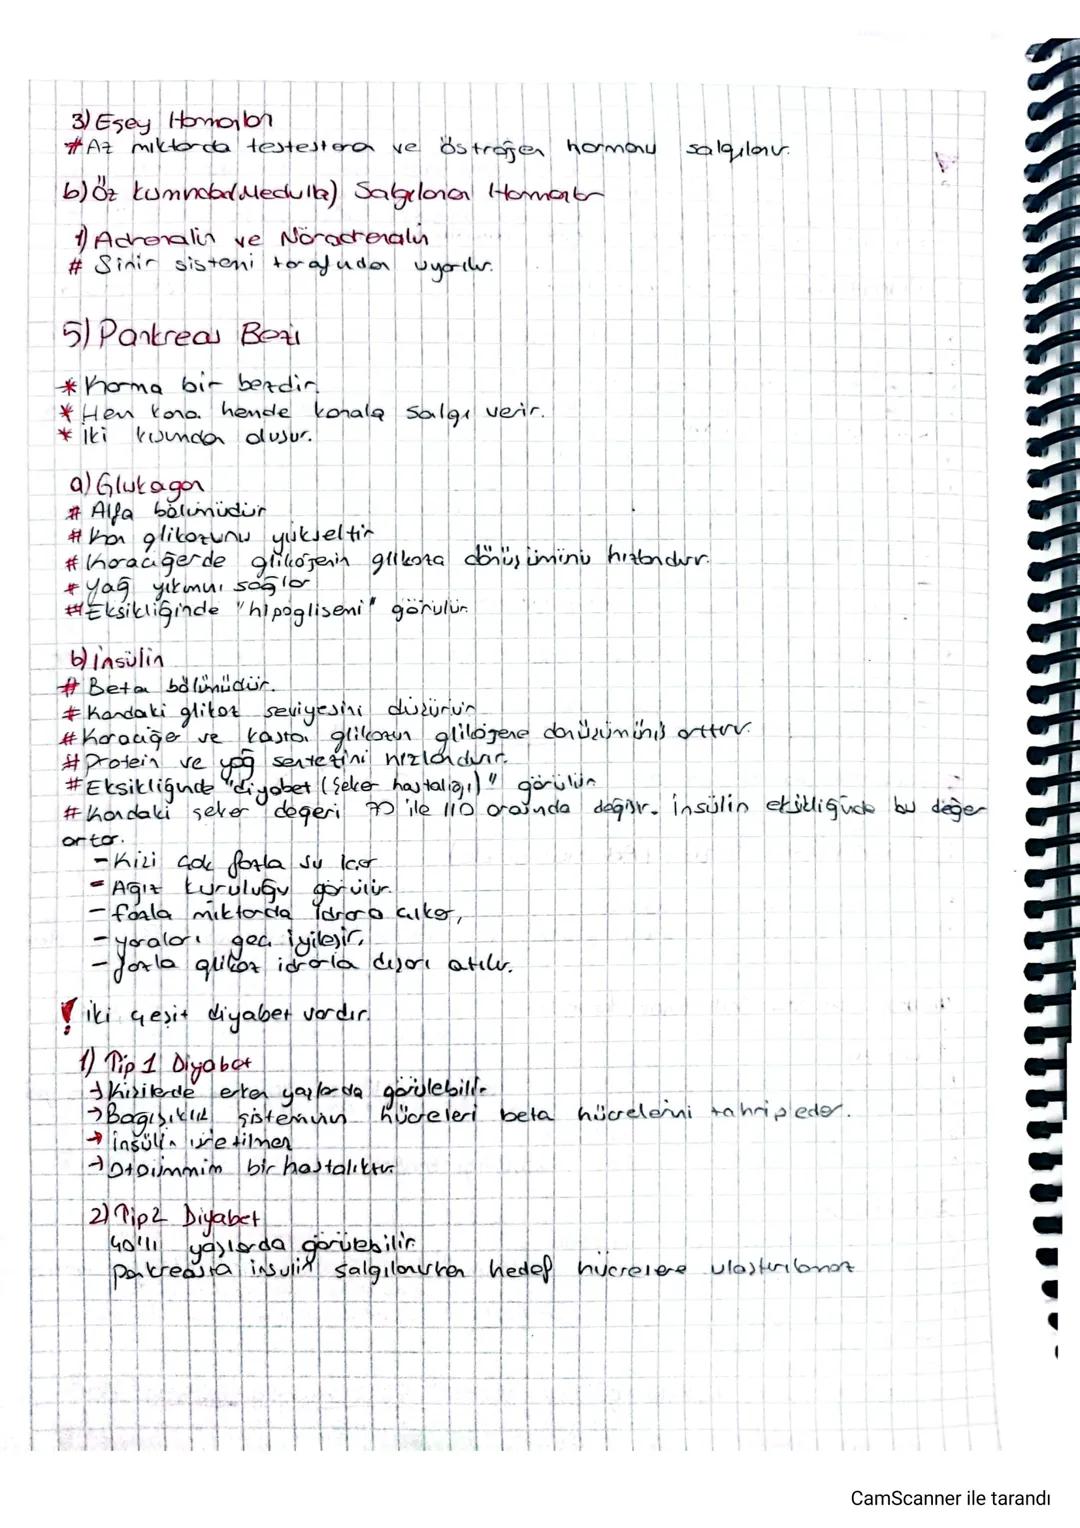 3) Eşey Hormonları
# Az miktarda testesteron ve östrojen hormonu salgılanır.
b) Öz kısmından (Medulla) Salgılanan Hormonlar
1) Adrenalin ve Nöradrenalin
# Sinir sistemi tarafından uyarılır.
5) Pankreas Bezi
* Karma bir bezdir.
* Hem kana hemde kanala salgı verir.
* İki kısımdan oluşur.
a) Glukagon
# Alfa bölümüdür
# Kan glikozunu yükseltir
# Karaciğerde glikojenin glikoza dönüşümünü hızlandırır.
# Yağ yıkımını sağlar
# Eksikliğinde "hipoglisemi" görülür.
b) insülin
# Beta bölümüdür.
# Kandaki glikoz seviyesini düşürür
# Karaciğer ve kasta glikozun glikojene dönüşümünü arttırır.
# Protein ve yağ sentezini hızlandırır.
# Eksikliğinde "diyabet (şeker hastalığı)" görülür
# Kandaki şeker değeri 70 ile 110 arasında değişir. İnsülin eksikliğinde bu değer
artar.
- Kişi çok fazla su içer
- Ağız kuruluğu görülür.
- fazla miktarda idrara çıkar,
- yaraları geç iyileşir,
- fazla glikoz idrarla dışarı atılır.
! İki çeşit diyabet vardır.
1) Tip 1 Diyabet
→ Kişilerde erken yaşlarda görülebilir
→ Bağışıklık sistemin hücreleri beta hücrelerini tahrip eder.
→ insülin üretilmez
→ Otoimmim bir hastalıktır
2) Tip 2 Diyabet
40'lı yaşlarda görülebilir
pankreasta insulin salgılanırken hedef hücrelere ulaştırılamaz
CamScanner ile tarandı